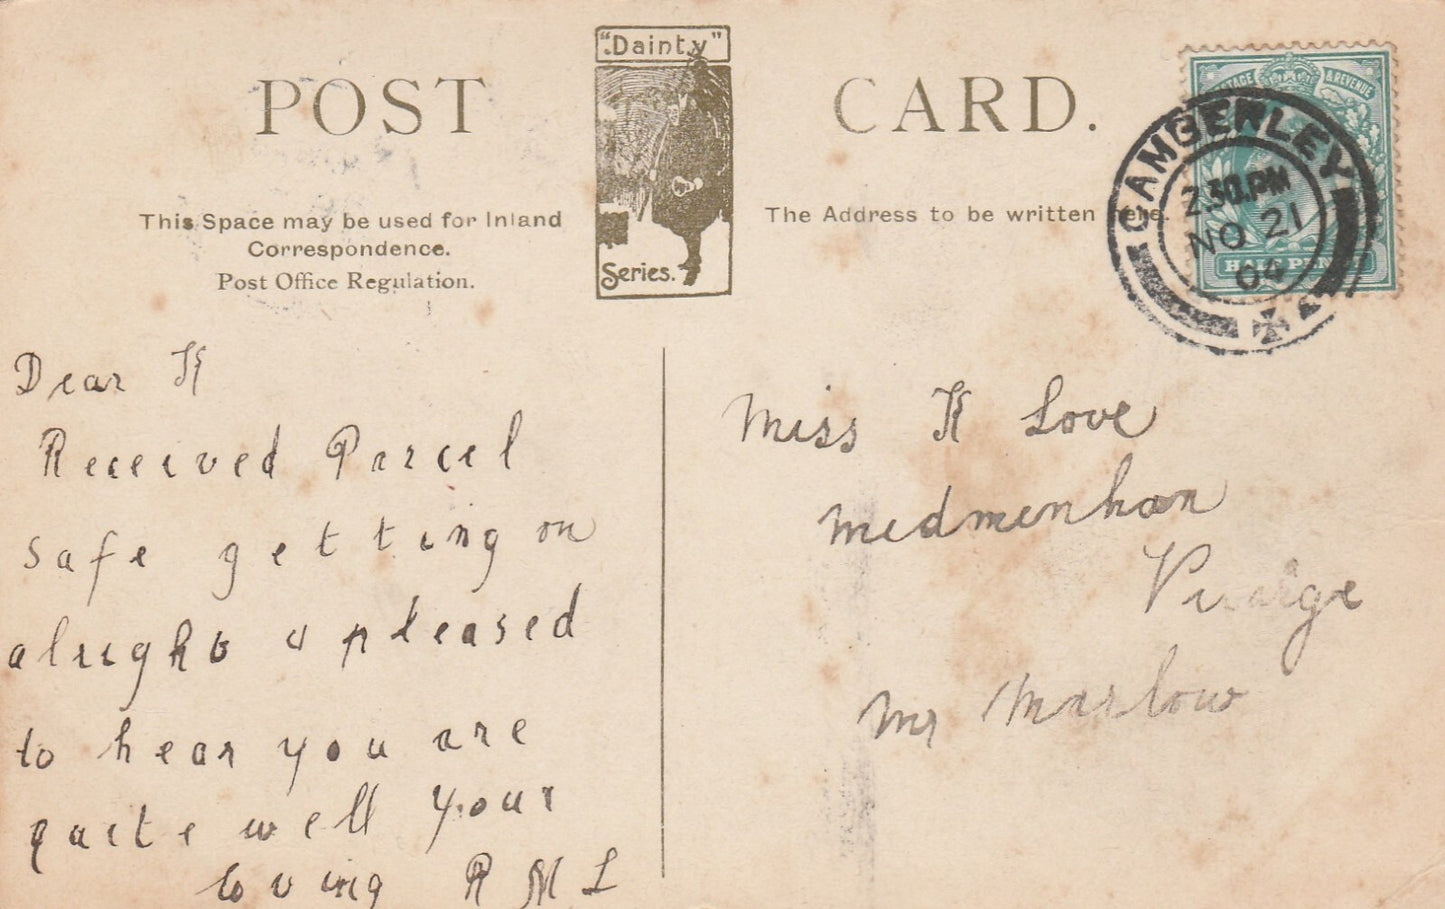 POST CARD.
"Dainty"
Series.
This Space may be used for Inland
Correspondence.
Post Office Regulation.
The Address to be written here.
POSTAGE & REVENUE
HALF PENNY
CAMBERLEY
2.30.PM
NO 21
04
Dear K
Received Parcel
safe getting on
alright & pleased
to hear you are
quite well your
loving R M L
Miss K Love
Medmenham
Mr Marlow